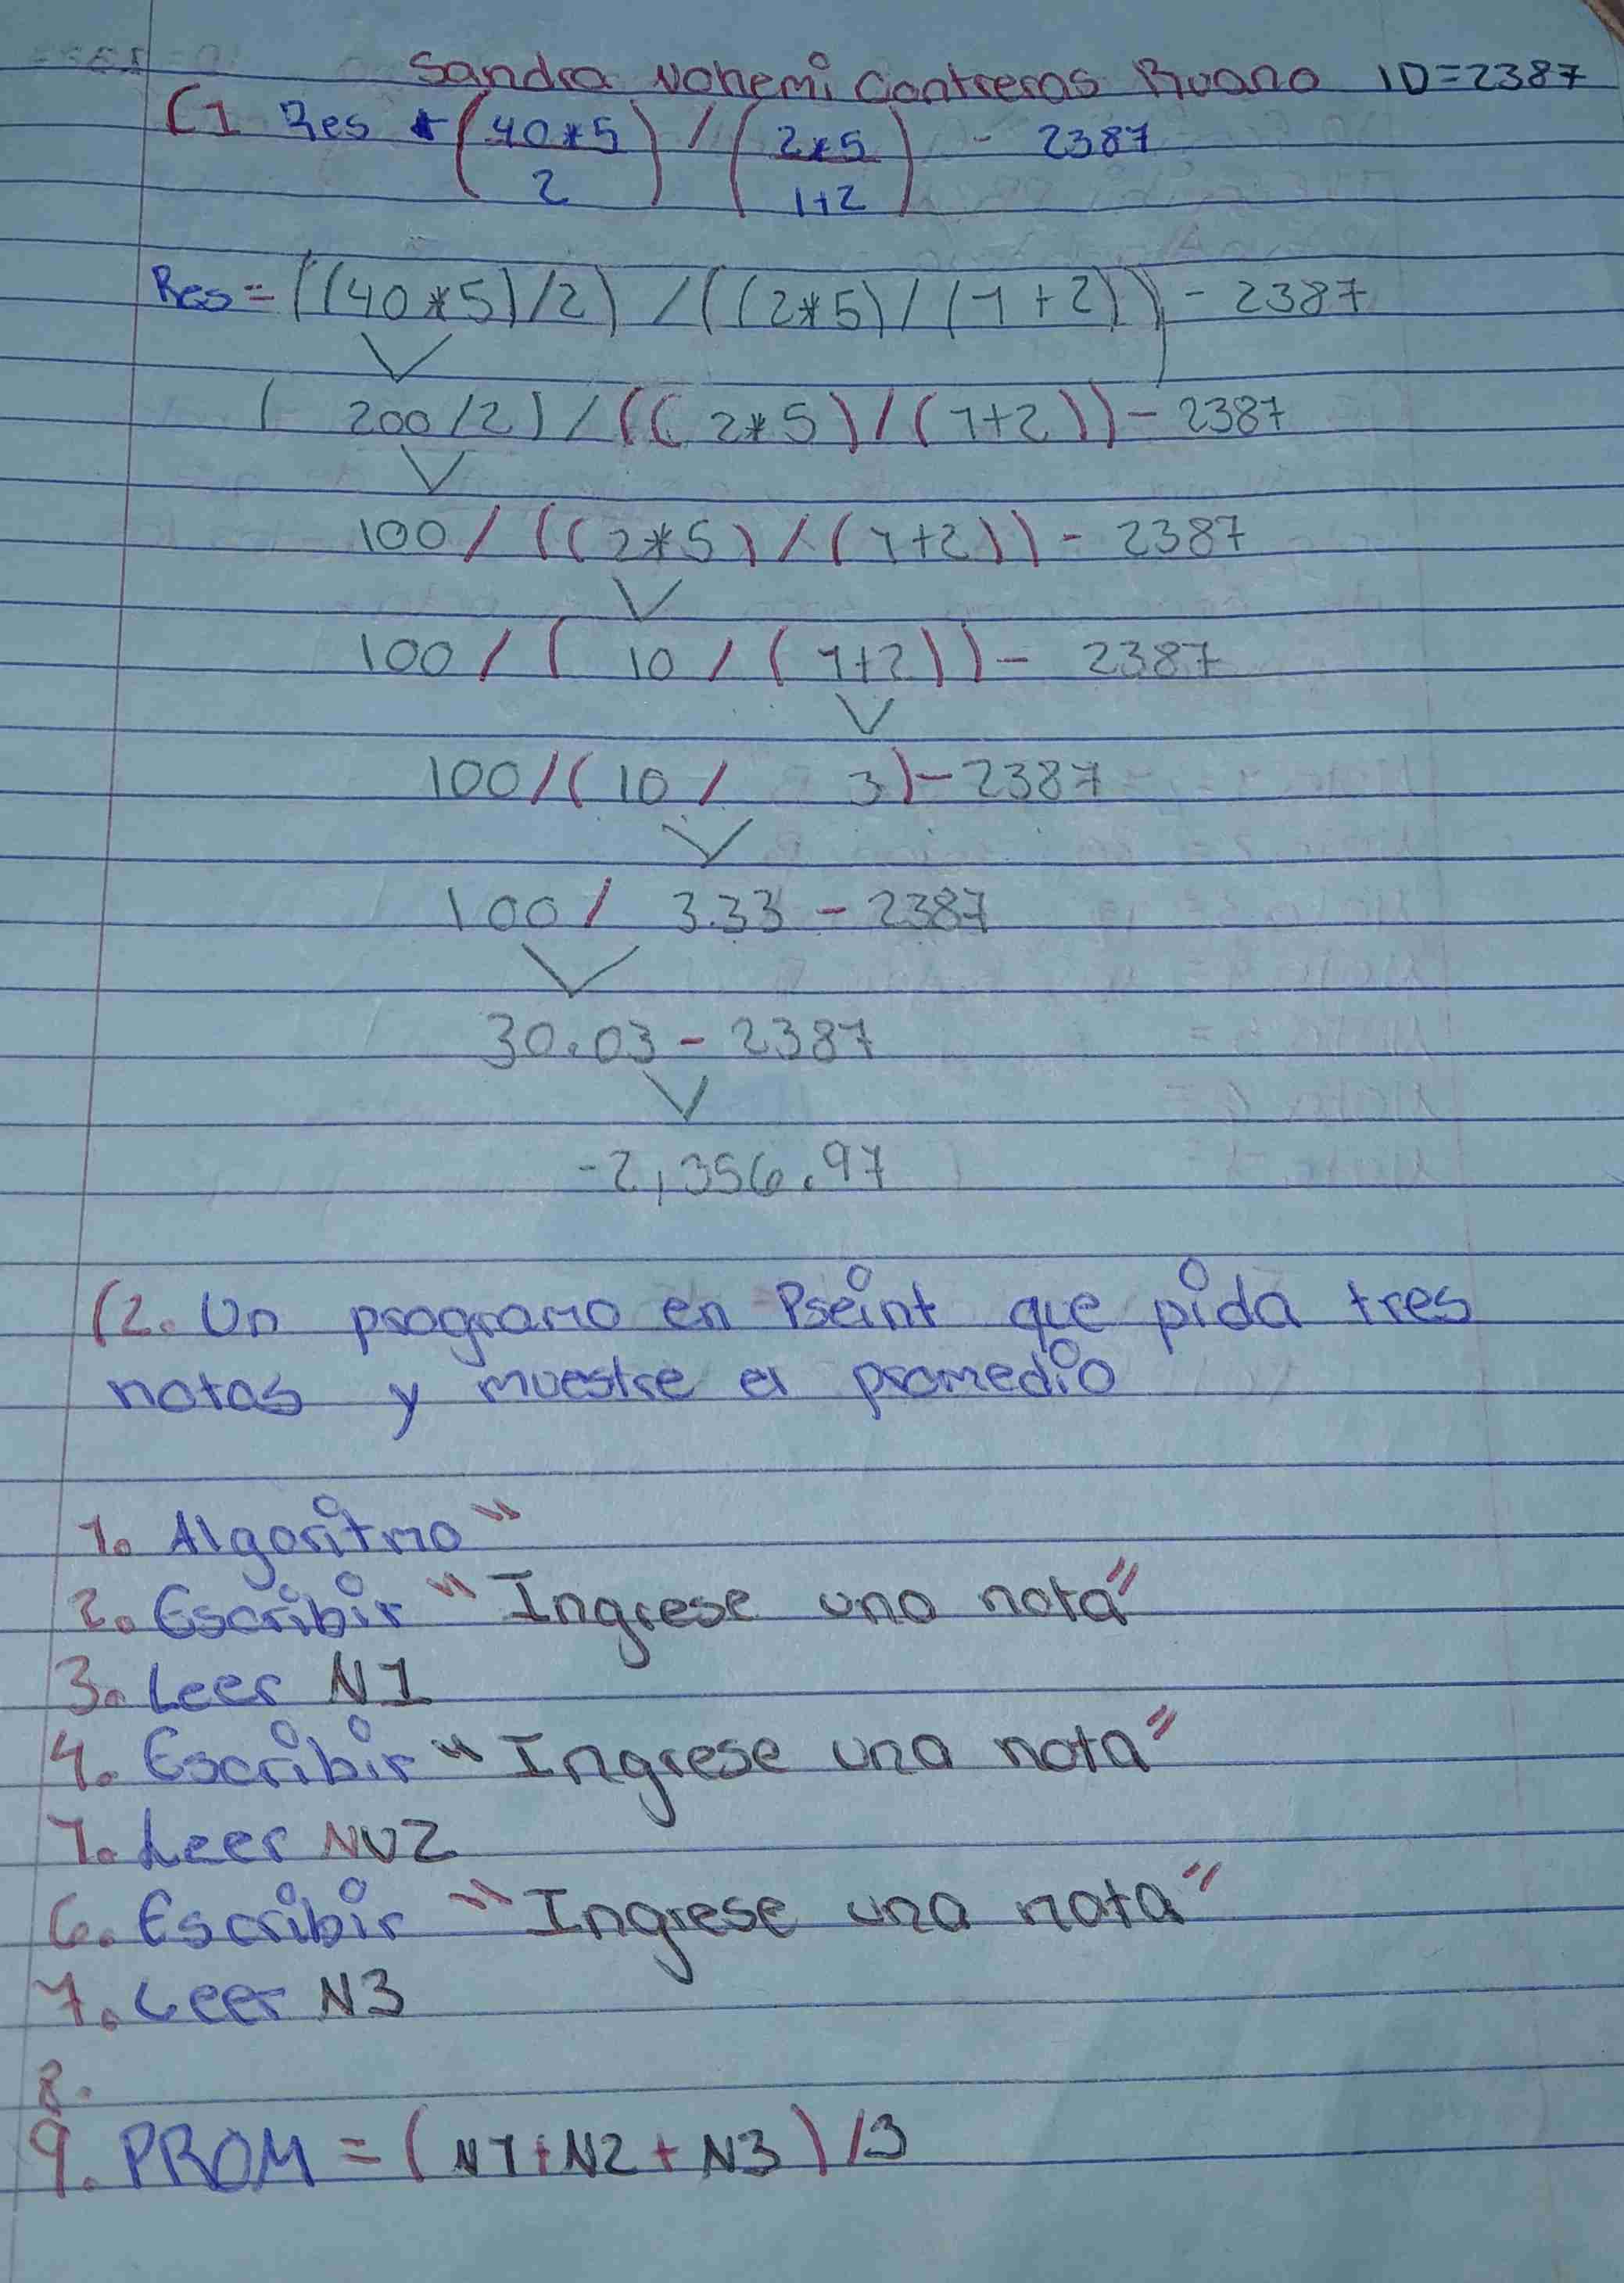 Sandra Nohemi Contreras Ruano ID=2387
(1 Res ← (40*5 / 2) / (2*5 / 1+2) - 2387
Res = ((40*5)/2) / ((2*5) / (1+2)) - 2387
( 200/2) / ((2*5) / (1+2)) - 2387
100 / ((2*5) / (1+2)) - 2387
100 / ( 10 / (1+2)) - 2387
100 / (10 / 3) - 2387
100 / 3.33 - 2387
30.03 - 2387
-2,356.97
(2. Un programa en Pseint que pida tres
notas y muestre el promedio
1. Algoritmo "
2. Escribir "Ingrese una nota"
3. Leer N1
4. Escribir "Ingrese una nota"
7. Leer NU2
6. Escribir "Ingrese una nota"
7. Leer N3
8.
9. PROM = (N1+N2+N3)/3